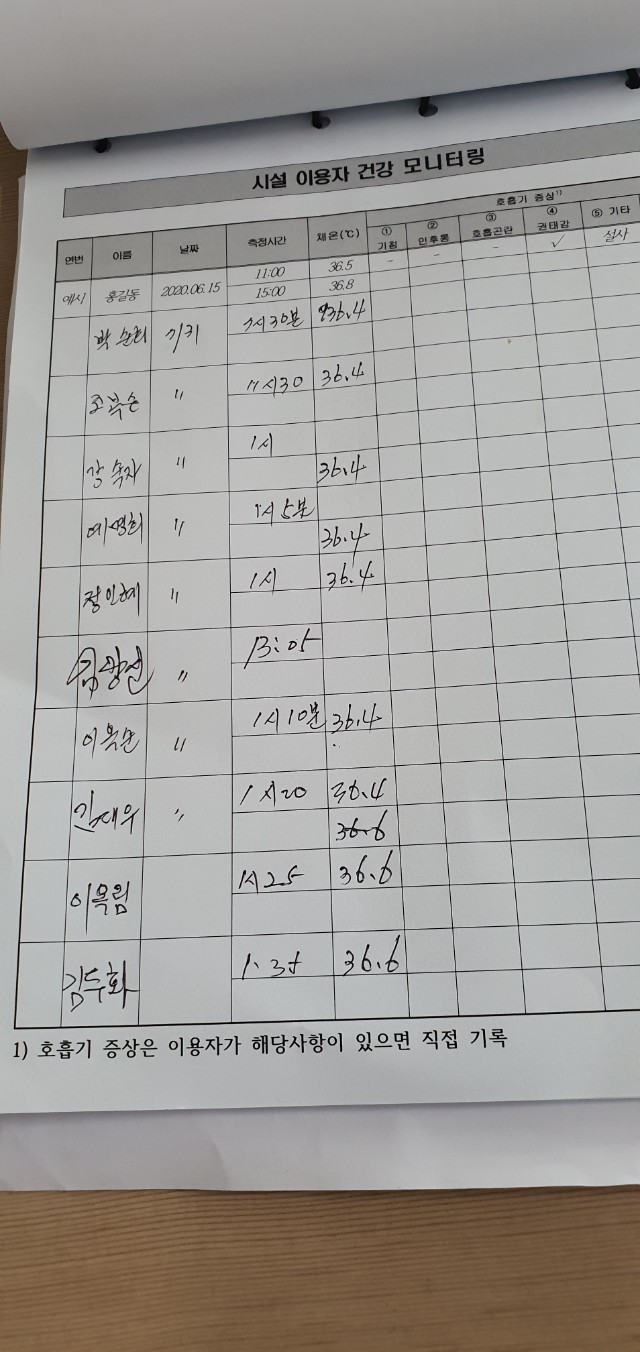 시설 이용자 건강 모니터링
연번 이름 날짜 측정시간 체온(℃) 호흡기 증상1)
① 기침 ② 인후통 ③ 호흡곤란 ④ 권태감 ⑤ 기타
예시 홍길동 2020.06.15 11:00 36.5 - - - ✓ 설사
15:00 36.8
박순희 30분 36.4
" 11시30 36.4
강숙자 " 1시
36.4
" 1시 5분
36.4
" 1시 36.4
" 13:05
이옥순 " 1시10분 36.4
김재우 " 1시20 36.4
36.6
이옥림 1시25 36.6
김두화 36.6
1) 호흡기 증상은 이용자가 해당사항이 있으면 직접 기록